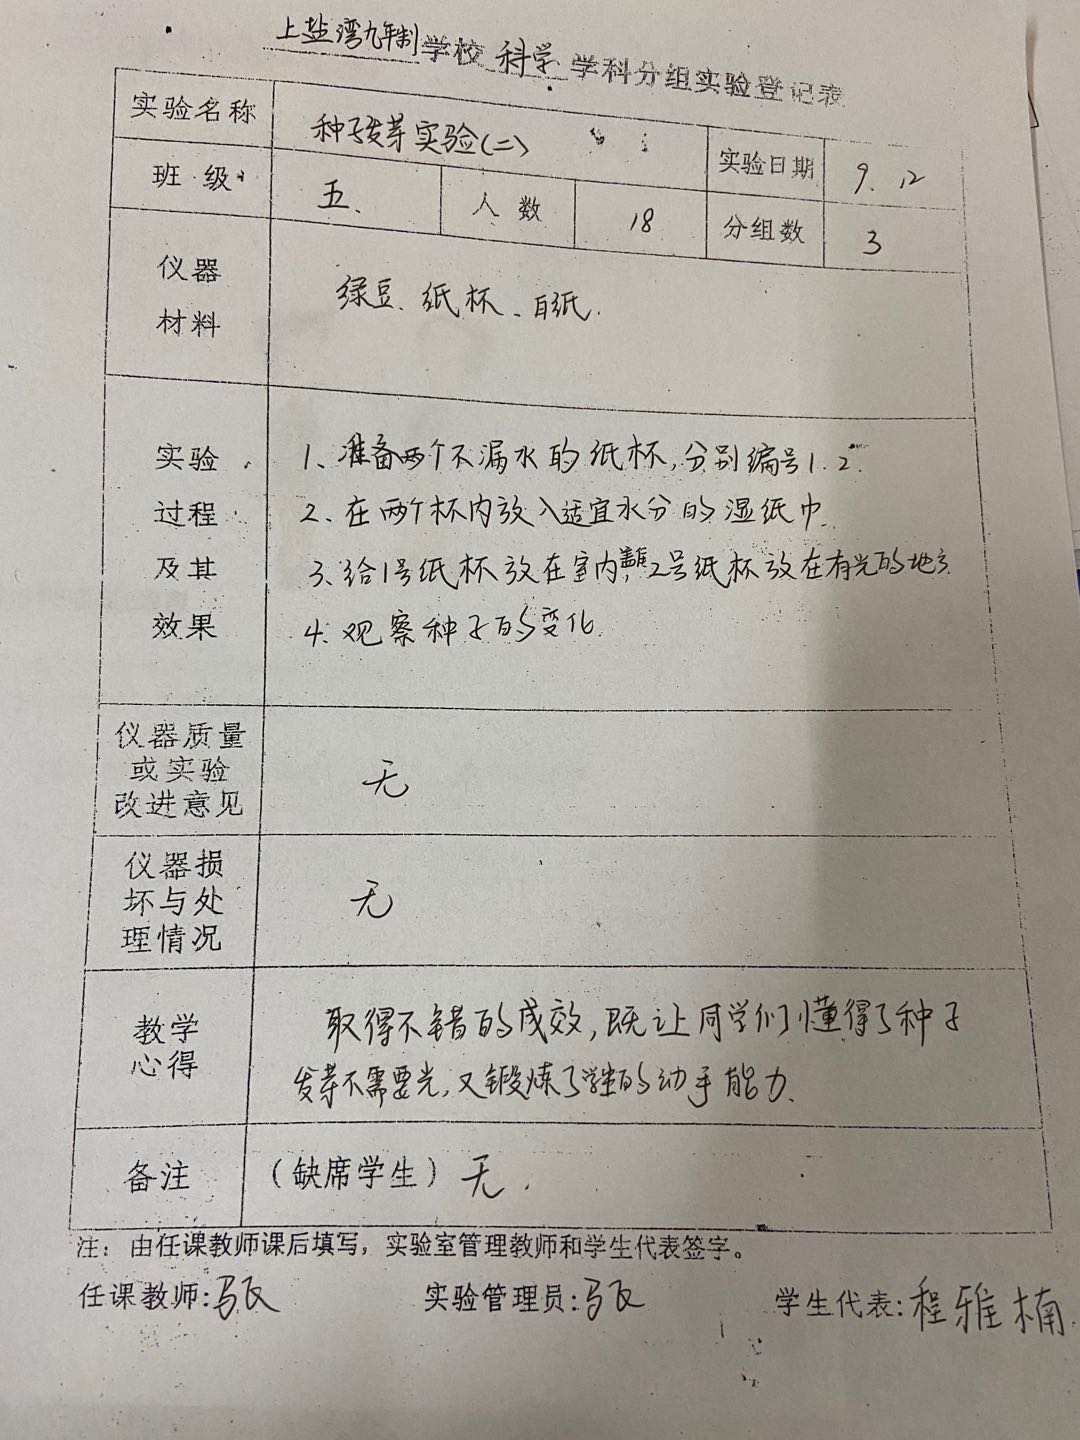 上盐湾九年制学校 科学 学科分组实验登记表
实验名称 种子发芽实验(二) 实验日期 9.12
班级 五. 人数 18 分组数 3
仪器
材料
绿豆、纸杯、白纸.
实验
过程
及其
效果
1、准备两个不漏水的纸杯,分别编号1.2.
2、在两个杯内放入适宜水分的湿纸巾.
3、给1号纸杯放在室内,2号纸杯放在有光的地方.
4、观察种子的变化.
仪器质量
或实验
改进意见
无
仪器损
坏与处
理情况
无
教学
心得
取得不错的成效,既让同学们懂得了种子
发芽不需要光,又锻炼了学生的动手能力.
备注 (缺席学生) 无.
注:由任课教师课后填写,实验室管理教师和学生代表签字。
任课教师: 实验管理员: 学生代表:程雅楠